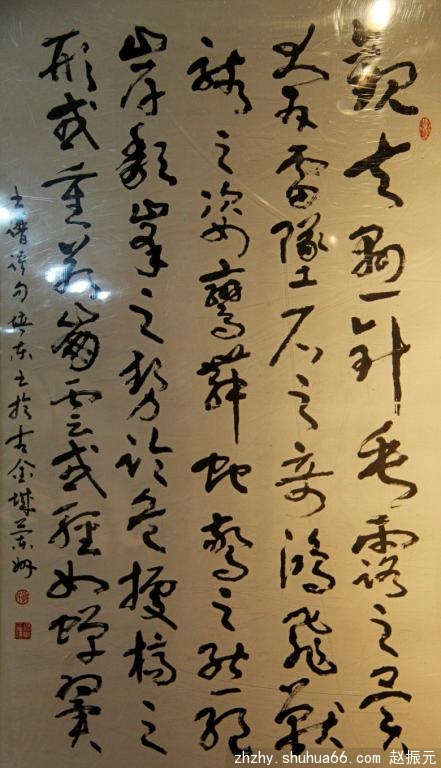 觀夫懸針垂露之異
奔雷墜石之奇鴻飛獸
駭之姿鸞舞蛇驚之態絕
岸頹峯之勢臨危據槁之
形或重若崩雲或輕如蟬翼
书譜語句培东书於古金城蘭州
zhzhy.shuhua66.com 赵振元